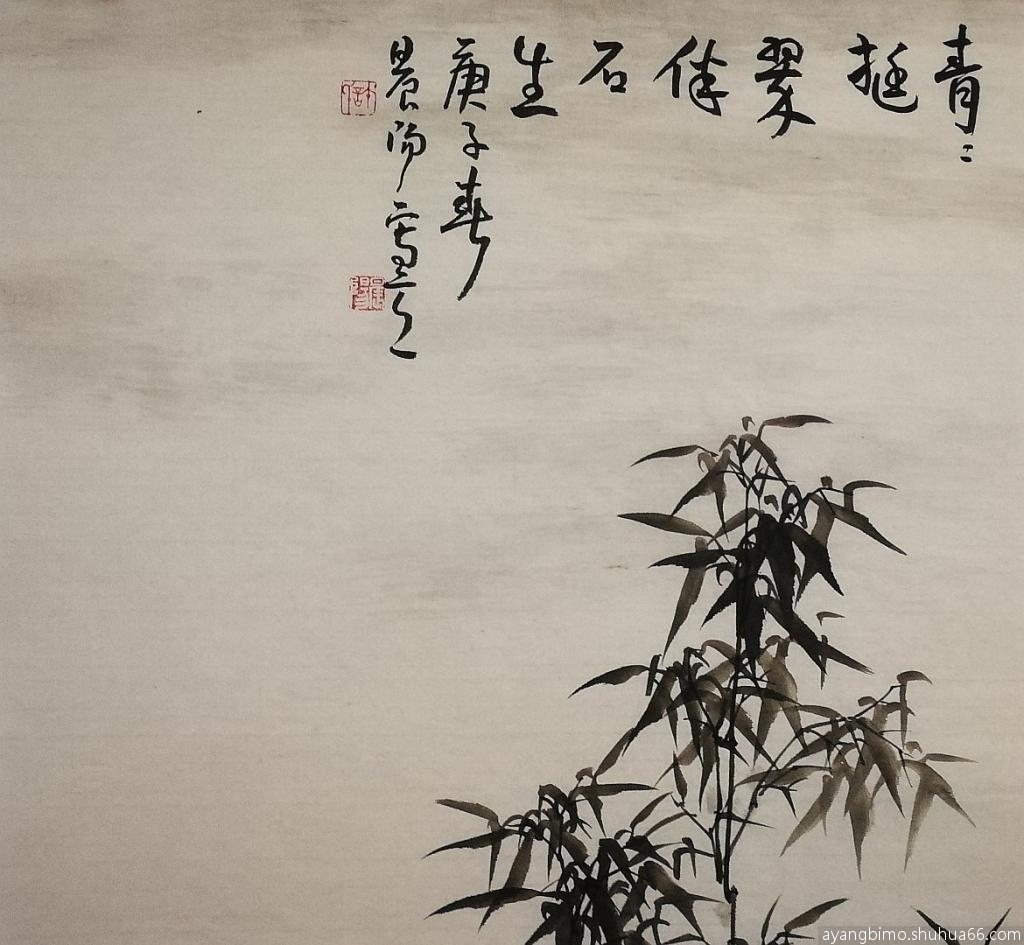 青〻挺翠伴石生
庚子春
晨陽寫之
ayangbimo.shuhua66.com